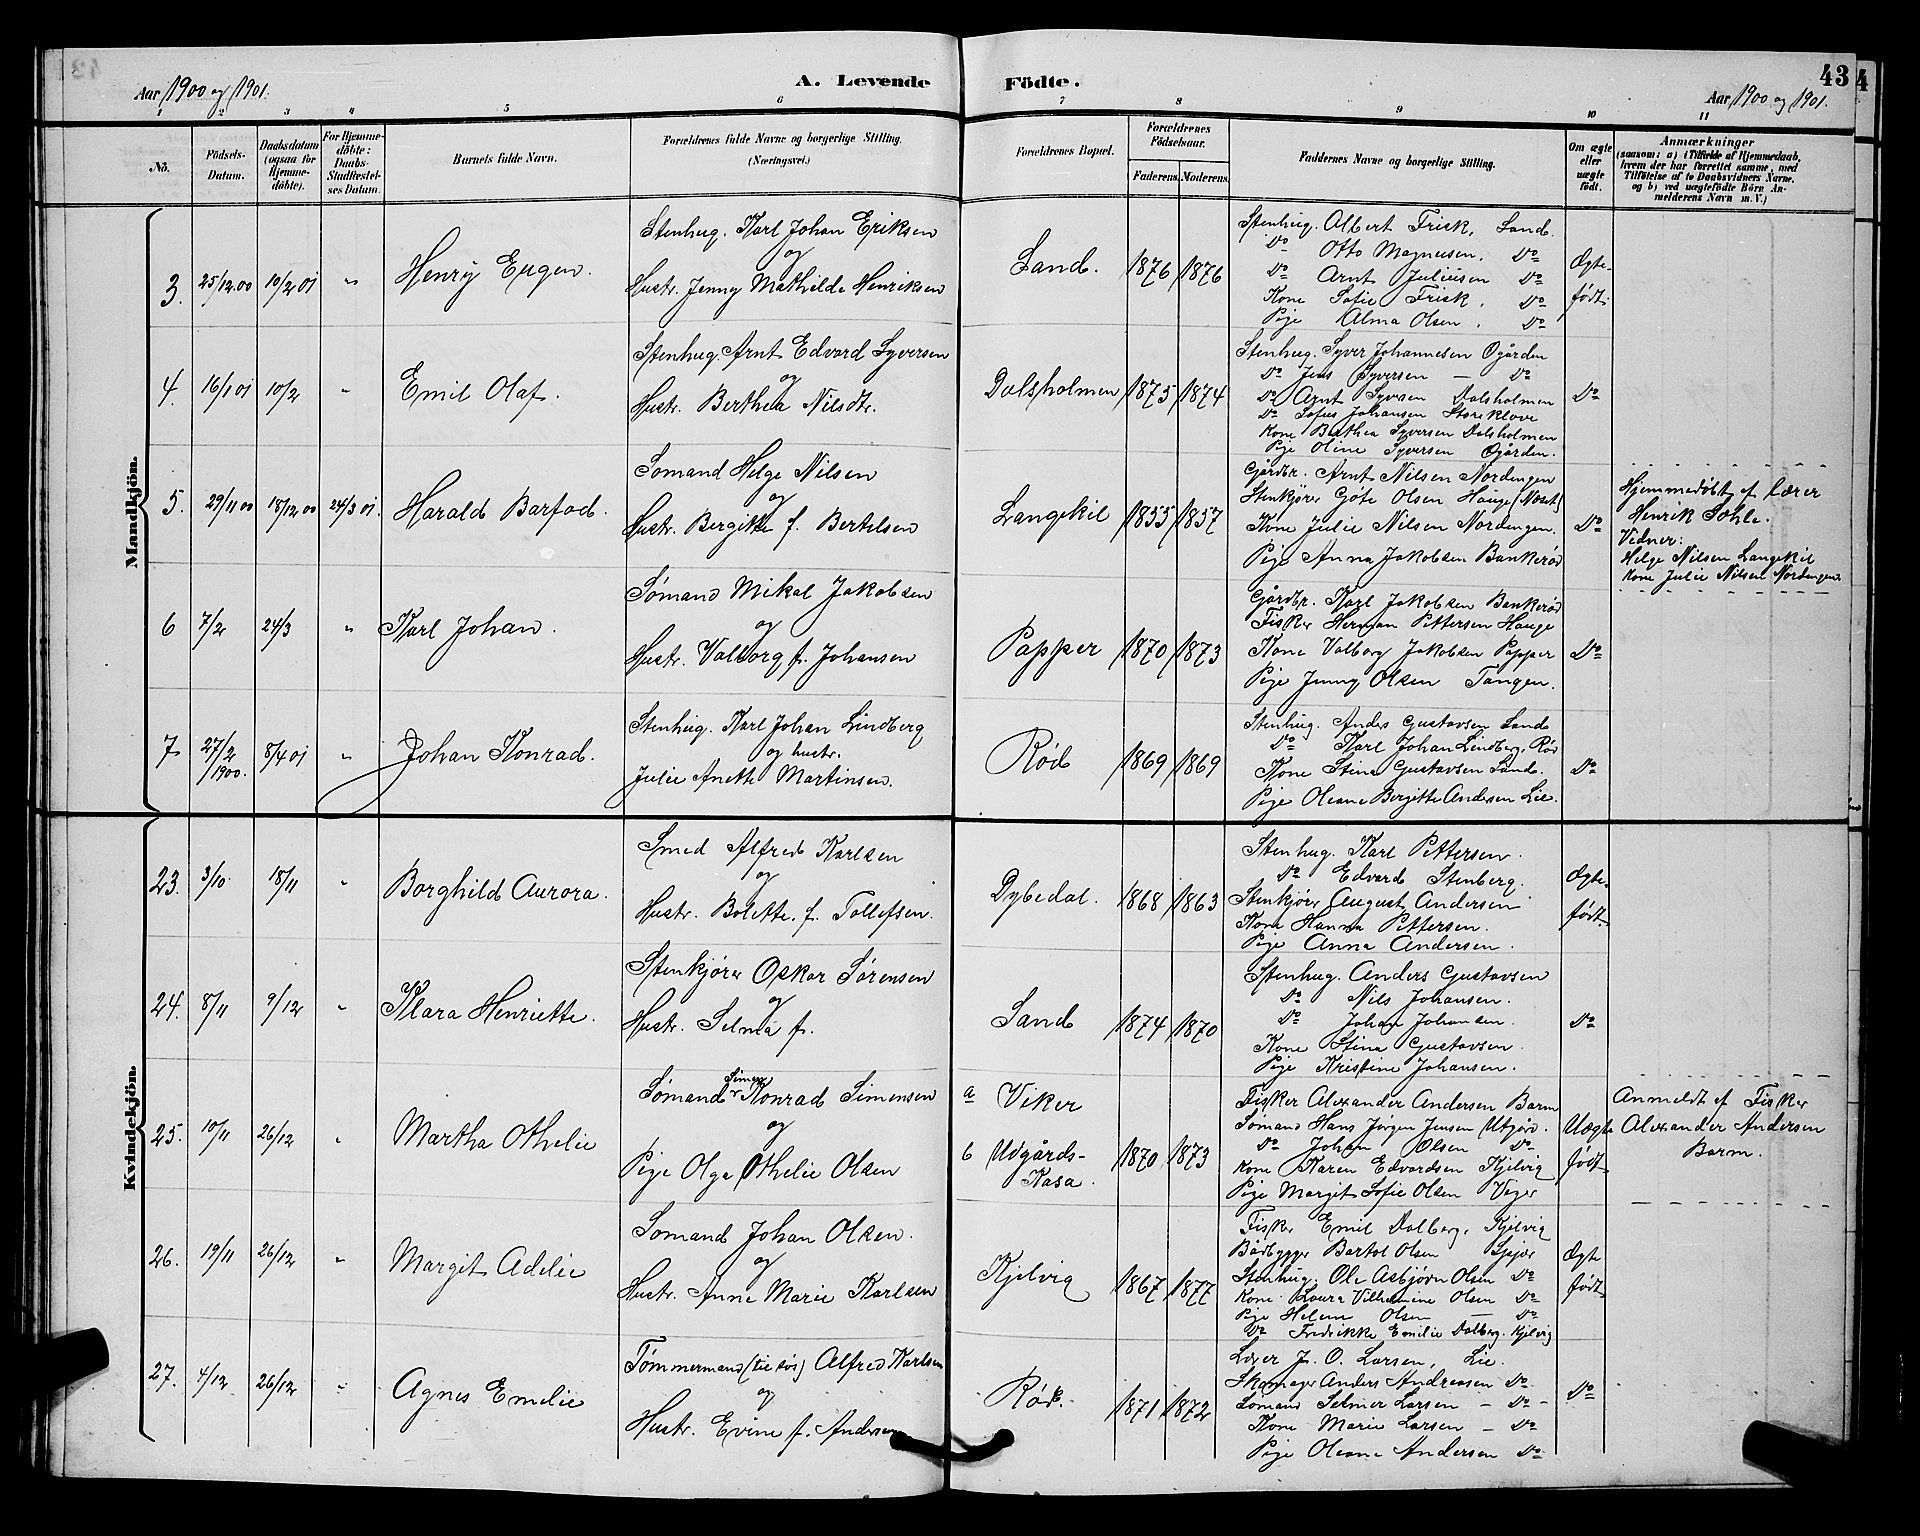 Aar 1900 og 1901.
A. Levende Födte.
43
Aar 1900 og 1901.
1 2 3 4 5 6 7 8 9 10 11
No.
Födsels-Datum.
Daabsdatum (ogsaa for Hjemme-döbte).
For Hjemme-döbte: Daabs-Stadfæstel-ses Datum.
Barnets fulde Navn.
Forældrenes fulde Navne og borgerlige Stilling.
(Næringsvei.)
Forældrenes Bopæl.
Forældrenes Födselsaar.
Faderens. Moderens.
Faddernes Navne og borgerlige Stilling.
Om ægte eller uægte födt.
Anmærkninger
(saasom: a) i Tilfælde af Hjemmedaab, hvem der har forrettet samme, med Tilföielse af to Daabsvidners Navne, og b) ved uægtefödte Börn An-melderens Navn m. V.)
Mandkjön.
3. 25/12.00 10/2 01 " Henry Eugen.
Stenhug. Karl Johan Eriksen
og
Hustr. Jenny Mathilde Henriksen
Sand. 1876 1876
Stenhug. Albert Frisk, Sand.
Do Otto Magnusen, Do
Do Arnt Juliusen Do
Kone Sofie Frisk, Do
Pige Alma Olsen. Do
Ægte-født.
4. 16/1 01 10/2 " Emil Olaf.
Stenhug. Arnt Edvard Syversen
og
Hustr. Berthea Nilsdtr.
Dalsholmen 1875 1874
Stenhug. Syver Johannesen Ogården
Do Jens Syversen — Do
Do Arnt Syvesen Dalsholmen
Do Sofus Johansen Storekløve
Kone Berthea Syversen Dalsholmen
Pige Oline Syversen Ogården.
Do
5. 29/11 00 18/12 00 24/3 01. Harald Barfod.
Sømand Helge Nilsen
og
Hustr. Bergitte f. Bertelsen
Langekil 1855 1857
Gårdbr. Arnt Nilsen Nordengen
Stenkjører Göte Olsen Hauge
Kone Julie Nilsen Nordengen.
Pige Anna Jakobsen Bankerød
Do
Hjemmedøbt af Lærer
Henrik Sohle.
Vidner:
Helge Nilsen Langekil
Kone Julie Nilsen Nordengen.
6 7/2 24/3 " Karl Johan.
Sømand Mikal Jakobsen
og
Hustr. Valborg f. Johansen
Papper 1870 1873
Gårdbr. Karl Jakobsen Bankerød
Fisker Herman Pettersen Hauge
Kone Valborg Jakobsen Papper
Pige Jenny Olsen Tangen.
Do
7 27/2 1900. 8/4 01 " Johan Konrad.
Stenhug. Karl Johan Lindberg
og hustr.
Julie Anette Martinsen.
Rød 1869 1869
Stenhug. Anders Gustavsen Sand
Do Karl Johan Lindberg, Rød
Kone Stina Gustavsen Sand.
Pige Oleane Bergitte Andersen Lie.
Do
Kvindekjön.
23. 3/10 18/11 " Borghild Aurora.
Smed Alfred Karlsen
og
Hustr. Bolette. f. Tollefsen.
Dybedal. 1868 1863
Stenhug. Karl Pettersen.
Do Edvard Stenberg.
Stenkjører August Andersen
Kone Hanna Pettersen.
Pige Anna Andersen.
Ægte-født.
24. 8/11 9/12 " Klara Henriette.
Stenkjører Oskar Sørensen
og
Hustr. Selma f.
Sand 1874 1870
Stenhug. Anders Gustavsen
Do Nils Johansen.
Do Johan Johansen.
Kone Stina Gustavsen.
Pige Kristine Johansen.
Do
25. 10/11 26/12 " Martha Othelie
Simen
Sømand Konrad Simensen
og
Pige Olga Othelie Olsen
a Viker
b Udgårds-Kasa. 1870 1873
Fisker Alexander Andersen Barm
Sømand Hans Jørgen Jensen Utgård.
Do Johan Olsen Do
Kone Karen Edvardsen Kjelvig
Pige Margit Sofie Olsen Viger
Uægte født
Anmeldt af Fisker
Alexander Andersen
Barm.
26. 19/11 26/12 " Margit Adelie
Sømand Johan Olsen.
og
Hustr. Anne Marie Karlsen
Kjelvig 1867 1877
Fisker Emil Dalberg, Kjelvig
Bådbygger Bartol Olsen Spjær
Stenhug. Ole Asbjørn Olsen Do
Kone Laura Vilhelmine Olsen Do
Pige Helene Olsen — Do
Do Fredrikke Emilie Dalberg. Kjelvig
Ægte født
27. 4/12 26/12 " Agnes Emelie
Tømmermand (tilsøs) Alfred Karlsen
og
Hustr. Evine f. Andersen
Rød. 1871 1872
Lærer J. O. Larsen, Lie.
Skomager Anders Andreasen Do
Sømand Selmer Larsen — Do
Kone Marie Larsen — Do
Pige Oleane Andersen Do
Do